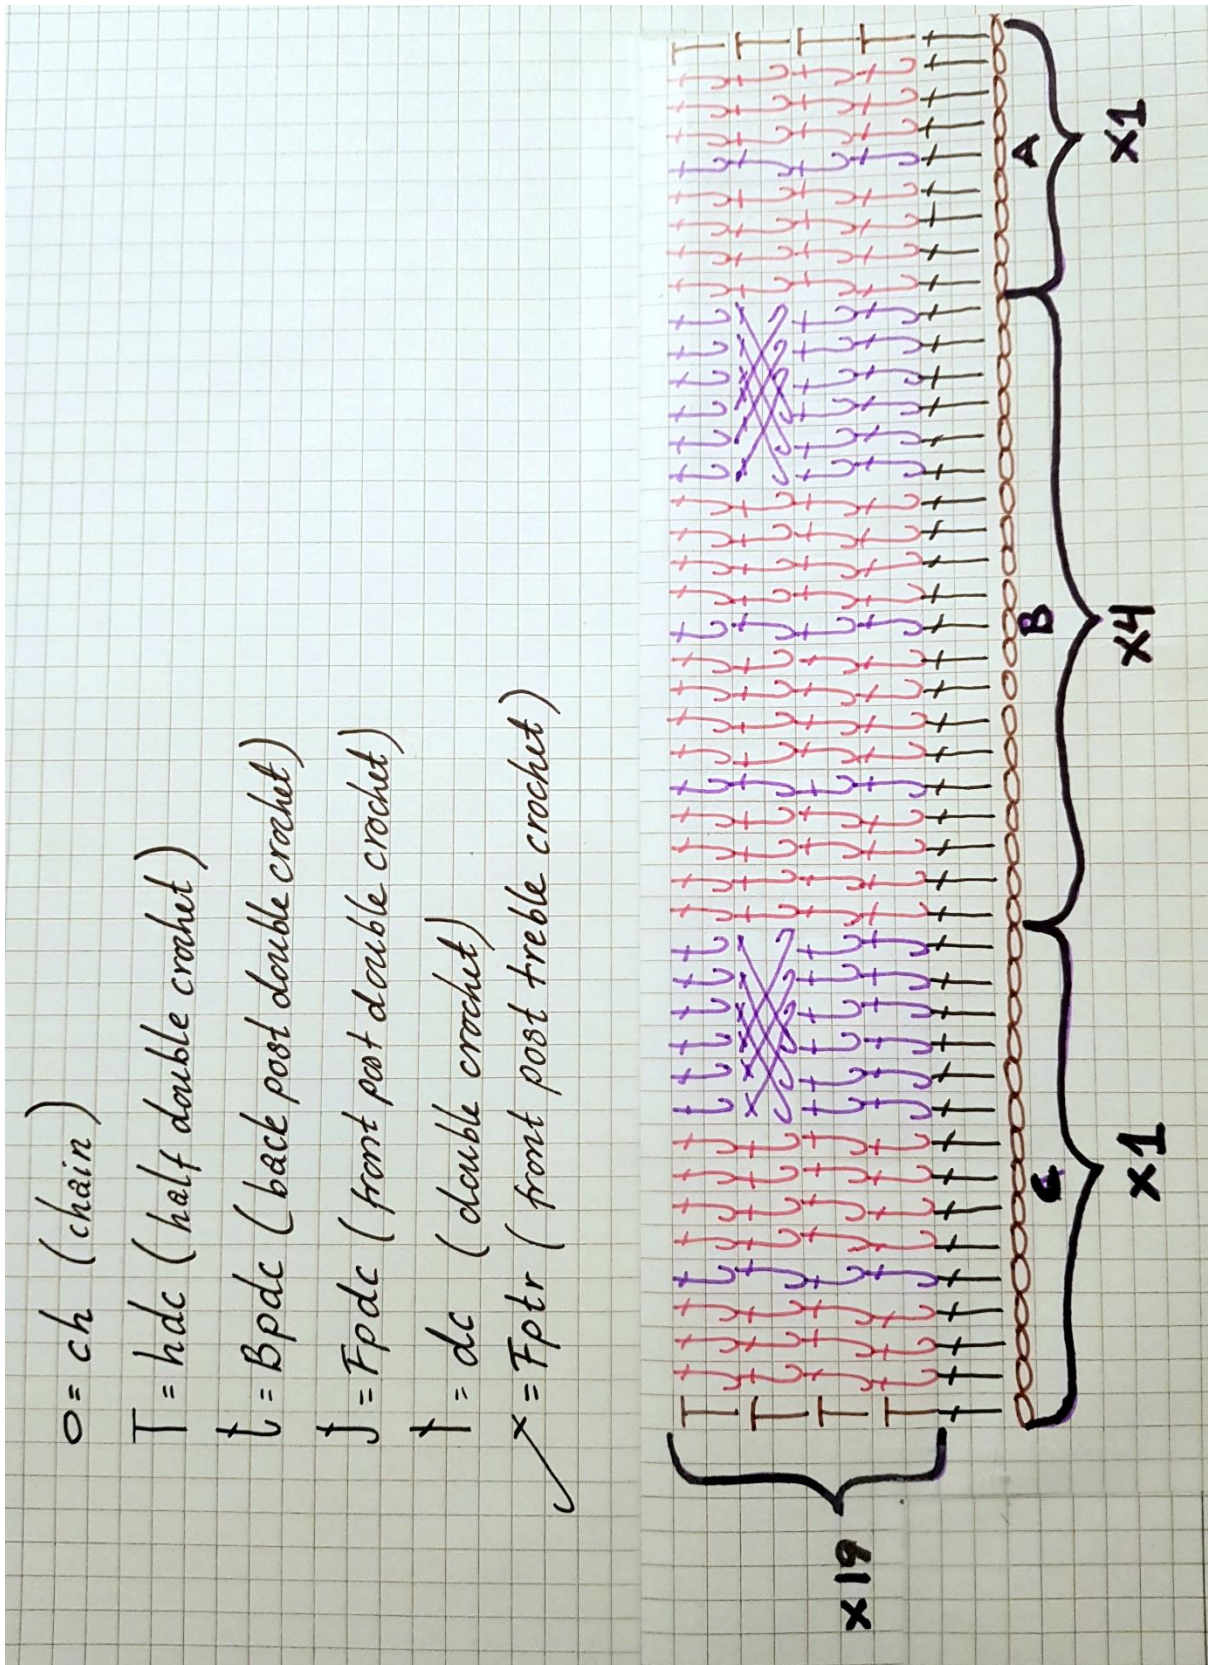 o = ch (chain)
T = hdc (half double crochet)
t = Bpdc (back post double crochet)
J = Fpdc (front post double crochet)
† = dc (double crochet)
x = Fptr (front post treble crochet)
x19
C
B
A
x1
x4
x1